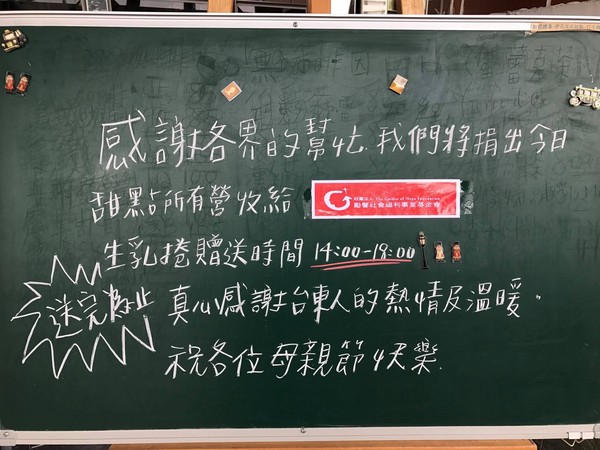 感謝各界的幫忙.我們將捐出今日
甜點所有營收給
財團法人 The Garden of Hope Foundation
勵馨社會福利事業基金會
生乳捲贈送時間 14:00-19:00
送完為止
真心感謝台東人的熱情及溫暖。
祝各位母親節快樂.